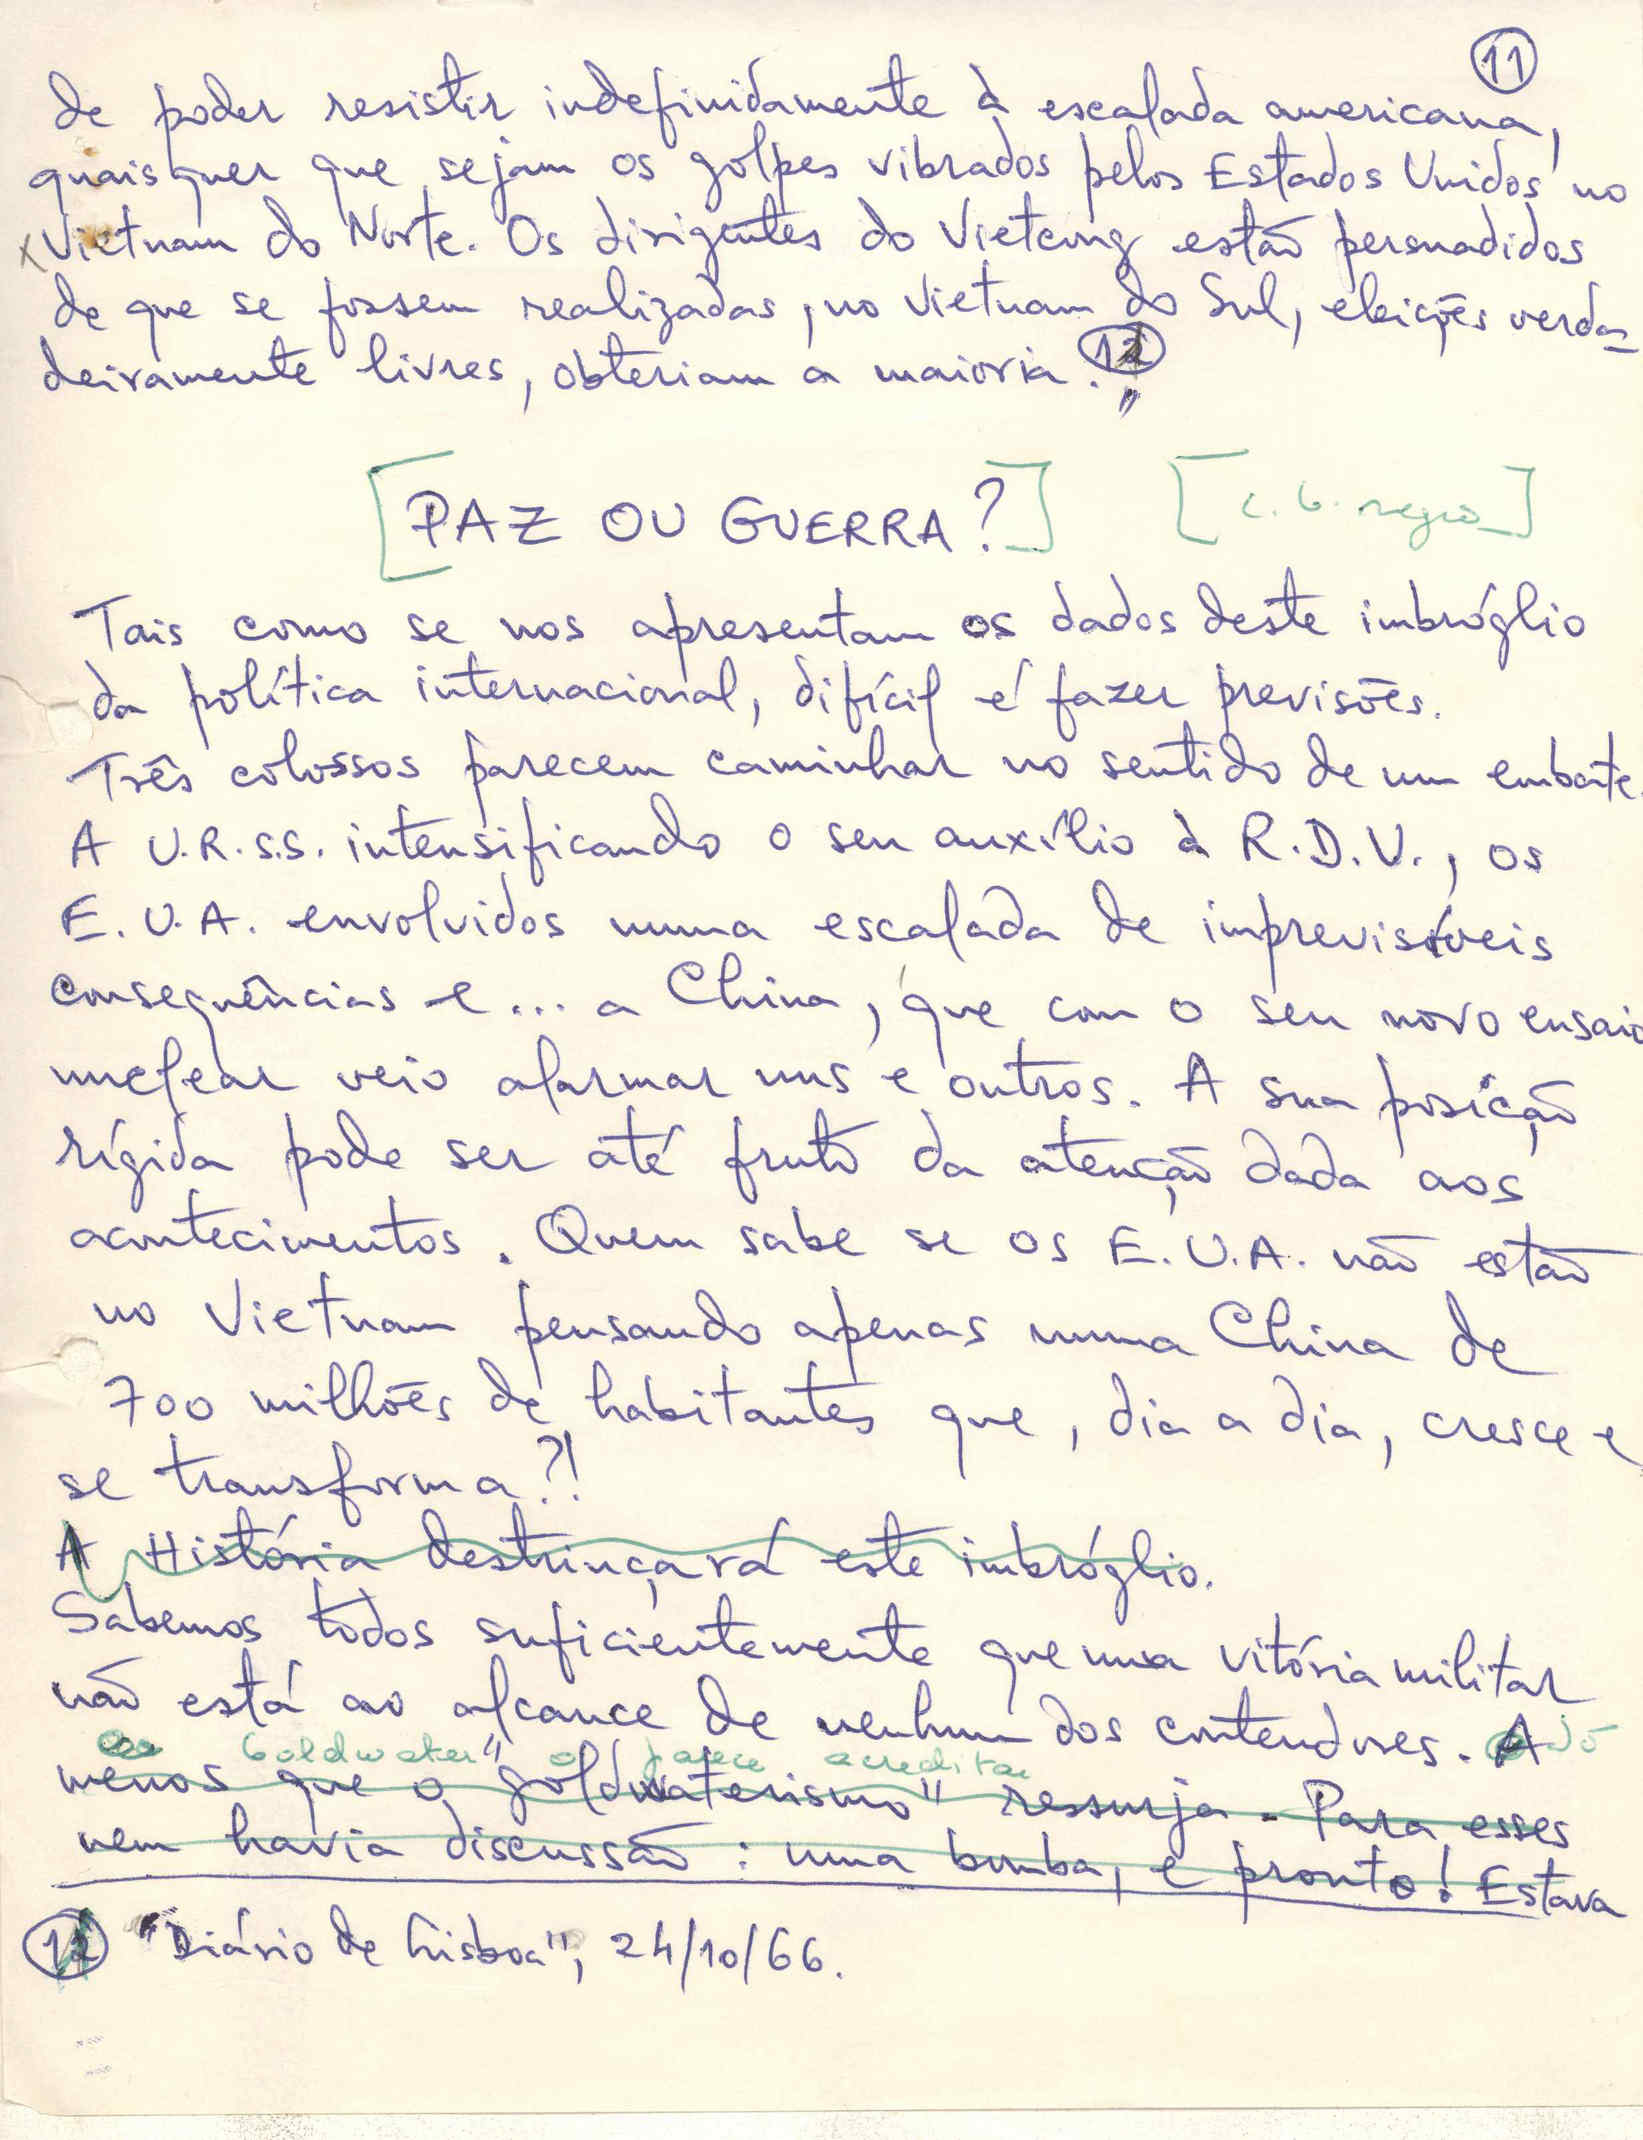 11
de poder resistir indefinidamente à escalada americana,
quaisquer que sejam os golpes vibrados pelos Estados Unidos no
x Vietnam do Norte. Os dirigentes do Vietcong estão persuadidos
de que se fossem realizadas, no Vietnam do Sul, eleições verda-
deiramente livres, obteriam a maioria." 12
[PAZ OU GUERRA?] [c. 6. negro]
Tais como se nos apresentam os dados deste imbróglio
da política internacional, difícil é fazer previsões.
Três colossos parecem caminhar no sentido de um embate.
A U.R.S.S. intensificando o seu auxílio à R.D.V., os
E.U.A. envolvidos numa escalada de imprevisíveis
consequências e... a China, que com o seu novo ensaio
nuclear veio alarmar uns e outros. A sua posição
rígida pode ser até fruto da atenção dada aos
acontecimentos. Quem sabe se os E.U.A. não estão
no Vietnam pensando apenas numa China de
700 milhões de habitantes que, dia a dia, cresce e
se transforma?!
A História destrinçará este imbróglio.
Sabemos todos suficientemente que uma vitória militar
não está ao alcance de nenhum dos contendores. A Só
Goldwater o parece acreditar
menos que o "goldwaterismo" ressurja. Para esses
nem havia discussão: uma bomba, e pronto! Estava
12 "Diário de Lisboa", 24/10/66.